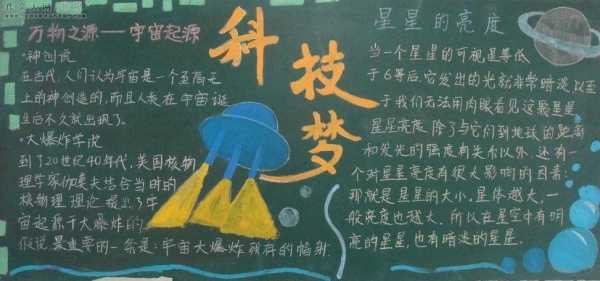 万物之源——宇宙起源
·神创说
在古代,人们认为宇宙是一个至高无
上的神创造的,而且人类在宇宙诞
生后不久就出现了。
·大爆炸学说
到了20世纪40年代,美国核物
理学家伽莫夫结合当时的
核物理理论提出了宇
宙起源于大爆炸的
假说最重要的一条是:宇宙大爆炸残存的辐射
科技梦
星星的亮度
当一个星星的可视星等低
于6等后,它发出的光就非常暗淡以至
于我们无法用肉眼看见这颗星星
星星亮度除了与它们到地球的距离
和发光的强度有关系以外,还有一
个对星星亮度有很大影响的因素:
那就是星星的大小,星体越大,一
般亮度也越大,所以在星空中有明
亮的星星,也有暗淡的星星.